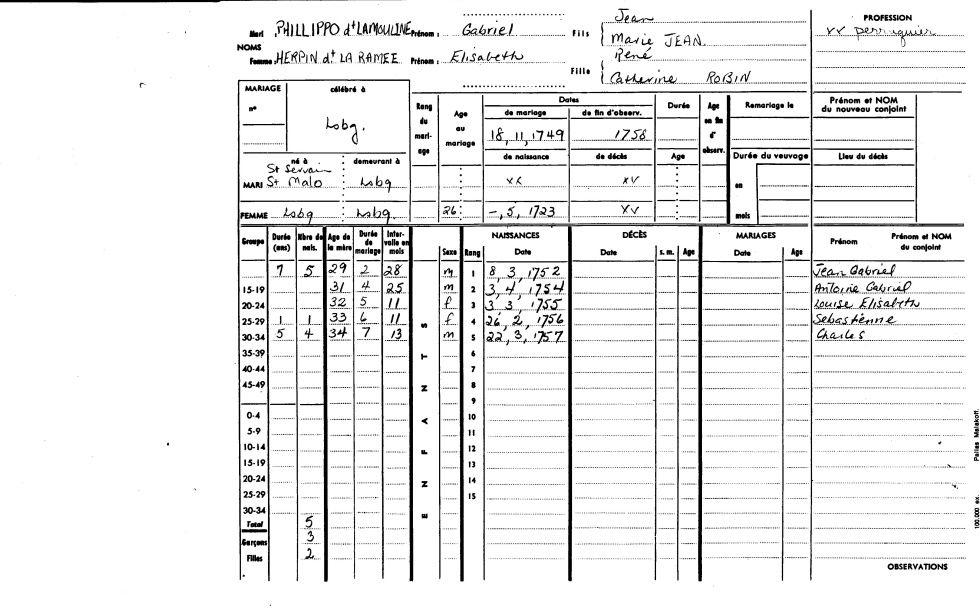 Mari PHILLIPPO dt LAMOULINE Prénom : Gabriel Fils Jean
Marie JEAN.
NOMS
Femme HERPIN dt LA RAMEE Prénom : Elisabeth Fille René
Catherine ROBIN
PROFESSION
xx perruquier
MARIAGE célébré à
n°
Lsbg.
Rang du mari-age
Age au mariage
Dates
de mariage de fin d'observ.
18, 11, 1749 1758
de naissance de décès
Durée
Age
Age en fin d' observ.
Remariage le
Durée du veuvage
en
mois
Prénom et NOM du nouveau conjoint
Lieu du décès
né à demeurant à
MARI St Servain St Malo Lsbg xx xv
FEMME Lsbg Lsbg. 26 -, 5, 1723 xv
Groupe Durée (ans) Nbre de nais. Age de la mère Durée de mariage Inter-valle en mois
ENFANTS
Sexe Rang NAISSANCES Date DÉCÈS Date s. m. Age MARIAGES Date Age Prénom Prénom et NOM du conjoint
7 5 29 2 28 m 1 8, 3, 1752 Jean Gabriel
15-19 31 4 25 m 2 3, 4, 1754 Antoine Gabriel
20-24 32 5 11 f 3 3, 3, 1755 Louise Elisabeth
25-29 1 1 33 6 11 f 4 26, 2, 1756 Sebastienne
30-34 5 4 34 7 13 m 5 22, 3, 1757 Charles
35-39 6
40-44 7
45-49 8
9
0-4 10
5-9 11
10-14 12
15-19 13
20-24 14
25-29 15
30-34
Total 5
Garçons 3
Filles 2
OBSERVATIONS
100,000 ex. Pallas Malakoff.